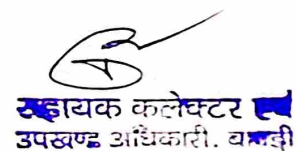 सहायक कलेक्टर एवं
उपखण्ड अधिकारी.